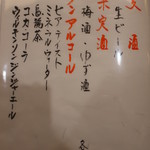 麦酒
生ビール
果実酒
梅酒・ゆず酒
ノンアルコール
ビアテイスト
ミネラルウォーター
烏龍茶
コカ・コーラ
ウィルキンソンジンジャーエール
各